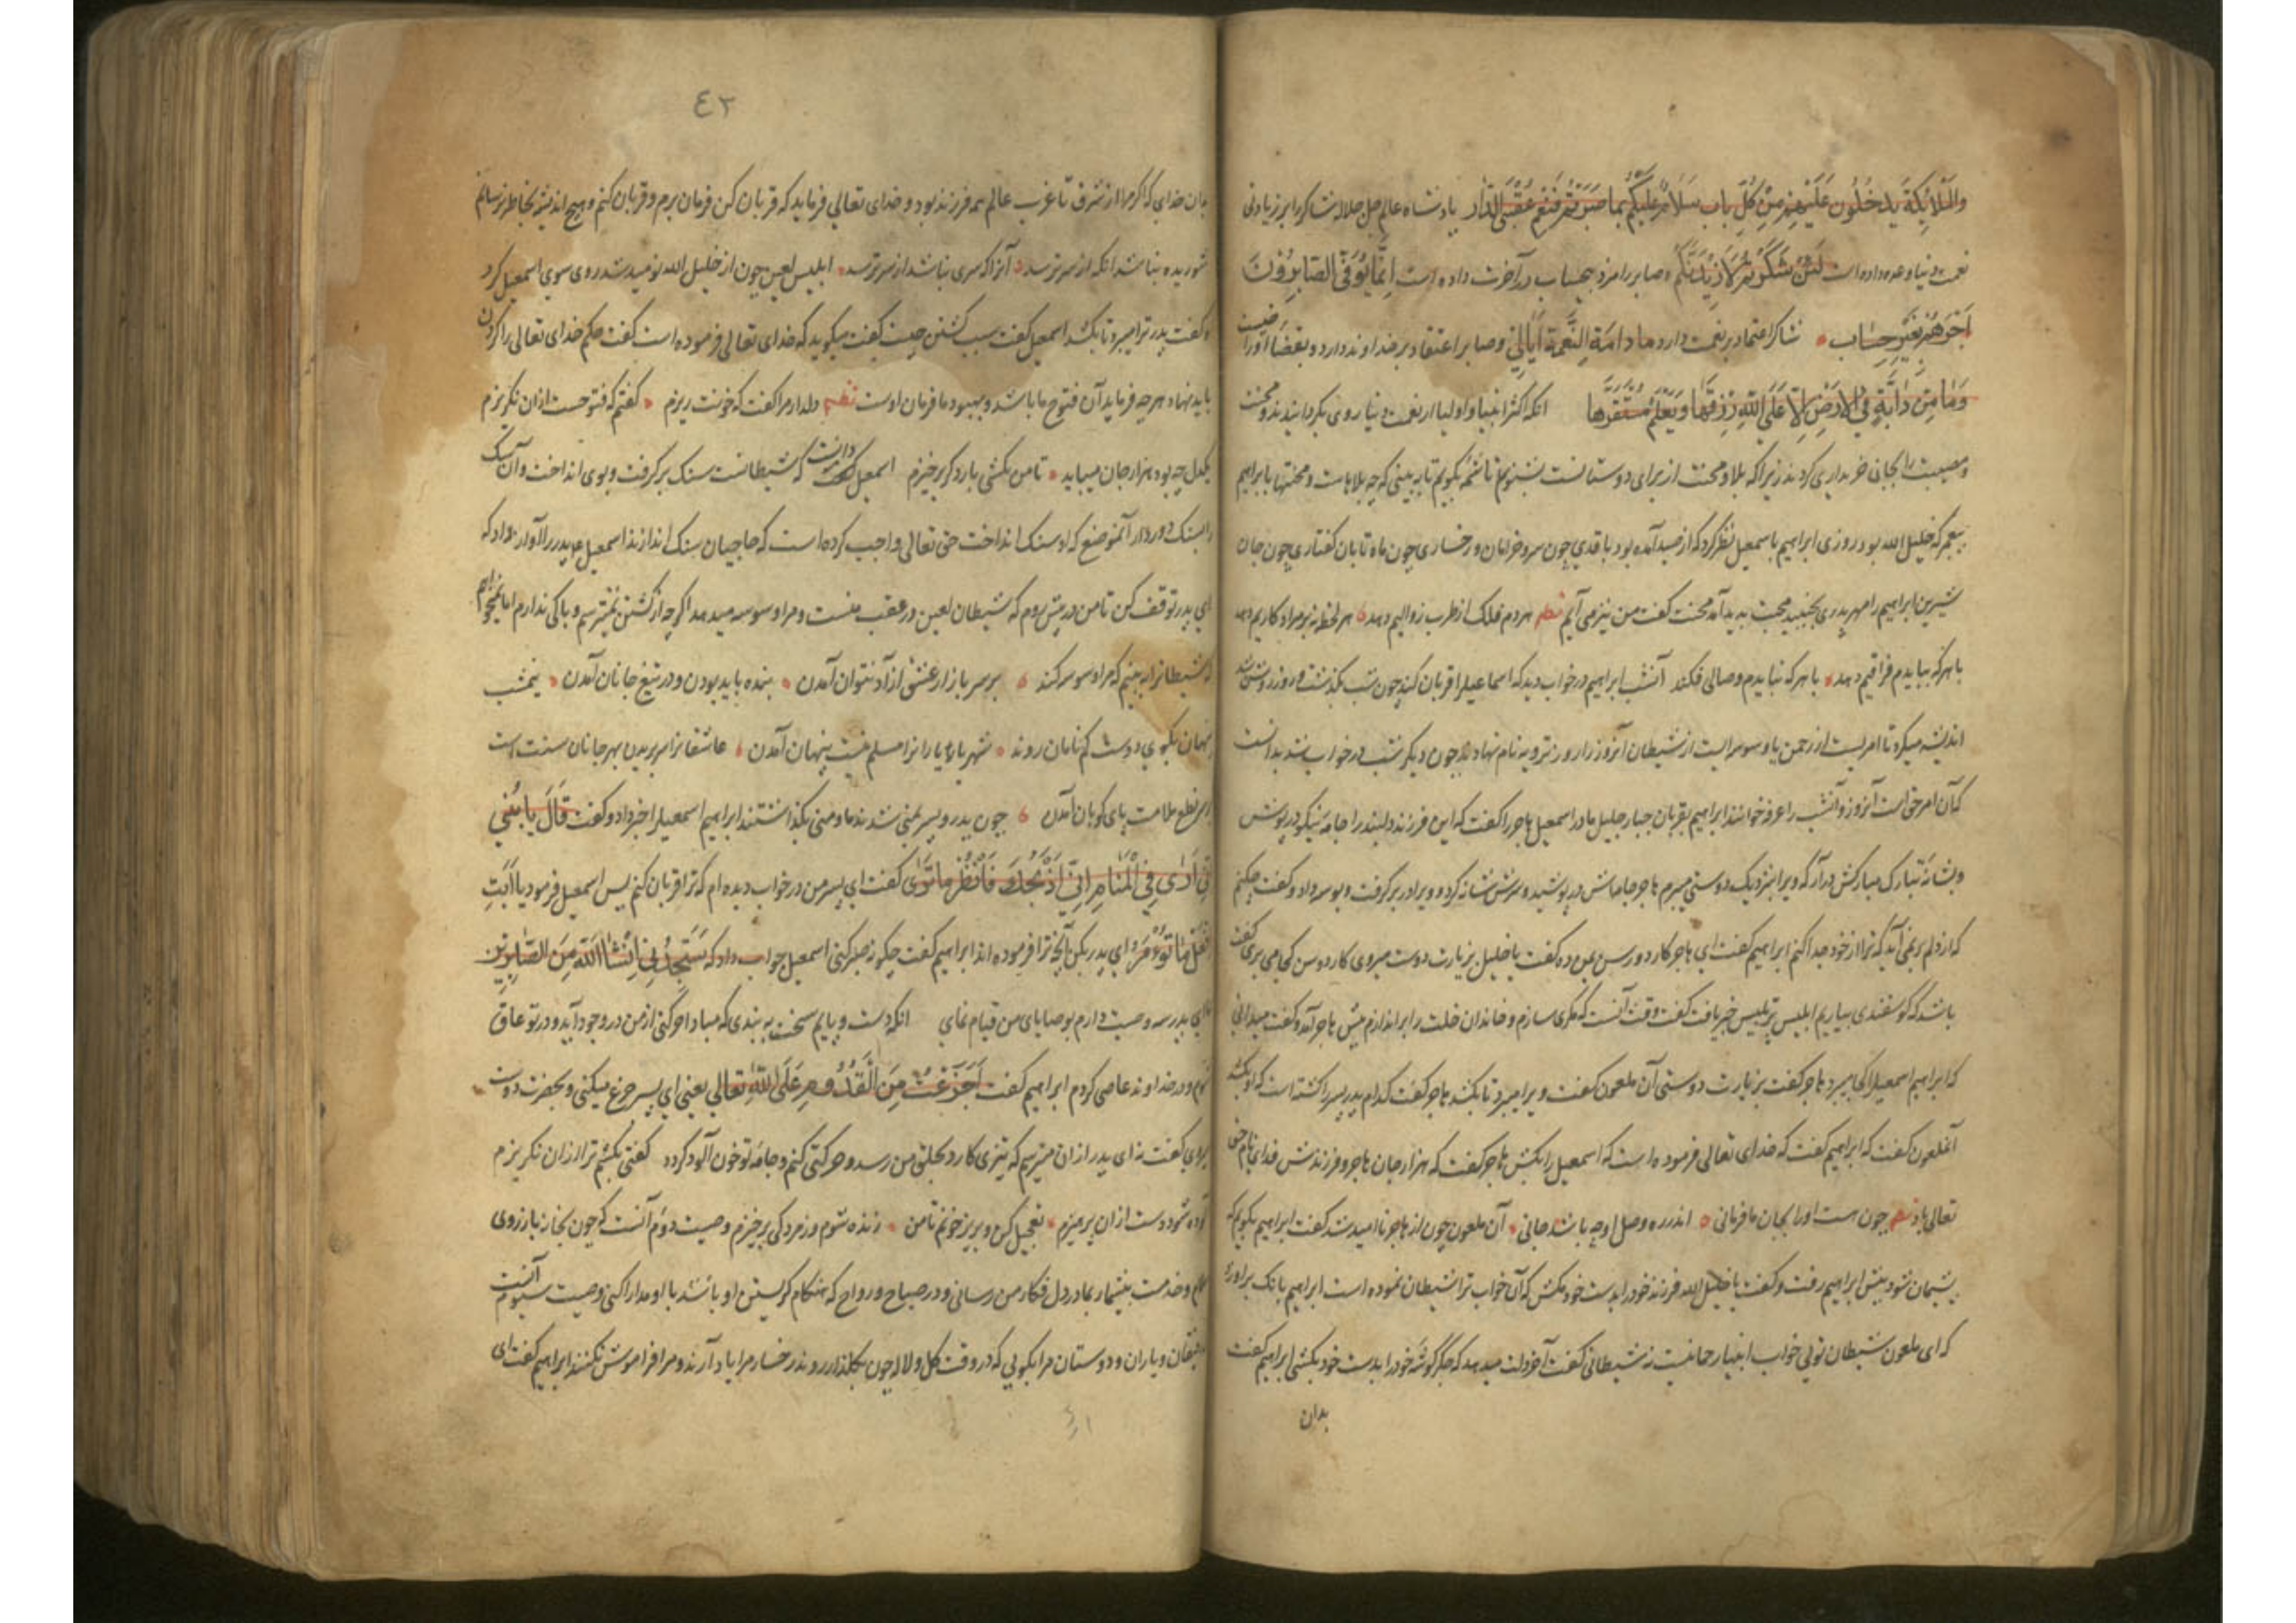 والملائكة يدخلون عليهم من كل باب سلام عليكم بما صبرتم فنعم عقبى الدار پادشاه عالم جل جلاله شاكر را بر زيادتى
نعمت دنيا وعده داده است لئن شكرتم لازيدنكم و صابر را مزد بيحساب در آخرت داده است انما يوفى الصابرون
اجرهم بغير حساب شاكر اعتماد بر نعمت دارد ما دامة النعمة و صابر اعتقاد بر خداوند دارد و بقضا او را
وما من دابة في الارض الا على الله رزقها ويعلم مستقرها انكه اكثر انبيا و اوليا از نعمت دنيا روى بكردانيدند و محنت
و مصيبت را بجانى خريدارى كردند زيرا كه بلا و محنت از براى دوستانست بشنو تا شمهٔ بكويم تا ببينى كه چه بلاهاست و محنتها با ابراهيم
پيغمبر كه خليل الله بود روزى ابراهيم با سمعيل نظر كرد كه از صيد آمده بود با قدى چون سرو خرامان و رخسارى چون ماه تابان كفتارى چون جان
شيرين ابراهيم را مهر پدرى بجنبيد محبت پديد آمد محنت كفت من نيز مى آيم نظم هر دم فلك از طرب زواليم دهد هر لحظه نه بر مراد كاريم دهد
با هركه ببايدم فراقيم دهد با هركه نبايدم وصالى فكند آنشب ابراهيم در خواب ديد كه اسماعيل را قربان كند چون شب بكذشت و روز روشن شد
انديشه ميكرد تا امريست از رحمن يا وسوسه ايست از شيطان آنروز را روز ترويه نام نهادند چون ديكر شب در خواب شد بدانست
كه آن امر حق است آنروز و آنشب را عرفه خوانند ابراهيم بقربان جبار جليل مادر اسمعيل هاجر را كفت كه اين فرزند دلبند را جامه نيكو در پوش
و بشانه تبارك مباركش درآر كه ويرا بنزديك دوستى ميبرم هاجر جامهاش در پوشيد و سرش شانه كرد و ويرا در بر كرفت و بوسه داد و كفت چكنم
كه از دلم بر نمى آيد كه ترا از خود جدا كنم ابراهيم كفت اى هاجر كارد و رسن بمن ده كفت يا خليل بزيارت دوست ميروى كارد و رسن كجا مى برى كفت
باشد كه كوسفندى بياريم ابليس پر تلبيس خبر يافت كفت وقت آنست كه مكرى سازم و خاندان خلت را براندازم پيش هاجر آمد و كفت ميدانى
كه ابراهيم اسمعيل را كجا ميبرد هاجر كفت بزيارت دوستى آن ملعون كفت ويرا ميبرد تا بكشد هاجر كفت كدام پدر پسر را كشته است كه او بكشد
آنملعون كفت كه ابراهيم كفت كه خداى تعالى فرموده است كه اسمعيل را بكش هاجر كفت كه هزار جان هاجر و فرزندش فداى نام حق
تعالى باد نظم چون هست او را بجان ما فرمانى اندر ره وصل او چه باشد جانى آن ملعون چون از هاجر نا اميد شد كفت ابراهيم بكويم كه
پشيمان شود پيش ابراهيم رفت و كفت يا خليل الله فرزند خود را بدست خود مكش كه آن خواب ترا شيطان نموده است ابراهيم بانك بر او زد
كه اى ملعون شيطان توئى خواب انبيا رحمانيست نه شيطانى كفت آخر دلت ميدهد كه جكر كوشهٔ خود را بدست خود بكشى ابراهيم كفت
بدان
٤٣
بدان خداى كه اكر مرا از شرق تا غرب عالم همه فرزند بود و خداى تعالى فرمايد كه قربان كن فرمان برم و قربان كنم و هيچ انديشه بخاطر نرسانم
شوريده نباشد انكه از سر ترسد آنرا كه سرى نباشد از سر ترسد ابليس لعين چون از خليل الله نوميد شد روى سوى اسمعيل كرد
و كفت پدر ترا ميبرد تا بكشد اسمعيل كفت سبب كشتن چيست كفت ميكويد كه خداى تعالى فرموده است كفت حكم خداى تعالى را كردن
بايد نهاد هرچه فرمايد آن فتوح ما باشد و بهبود ما فرمان اوست نظم دلدار مرا كفت كه خونت ريزم كفتم كه فتوحست ازان نكريزم
يكدل چه بود هزار جان ميبايد تا من بكشى بار دكر برخيزم اسمعيل دانست كه شيطانست سنك بركرفت و بوى انداخت و آن سنك
آنموضع كه او سنك انداخت حق تعالى واجب كرده است كه حاجيان سنك اندازند اسمعيل پدر را آواز داد كه
اى پدر توقف كن تا من در پيش روم كه شيطان لعين در عقب منست و مرا وسوسه ميدهد اكرچه از كشتن نميترسم و باكى ندارم اما نميخواهم
كه شيطانرا به بينم كه مرا وسوسه كند بر سر بازار عشق آزاد نتوان آمدن بنده بايد بودن و در تيغ جانان آمدن نيمشب
پنهان بكوى دوست كم نامان روند شهريار يارانرا مسلم نيست پنهان آمدن عاشقانرا سر بريدن بهر جانان سنت است
بر سر نطع ملامت پاى كوبان آمدن چون پدر و پسر بمنى شدند ما و منى بكذاشتند ابراهيم اسمعيل را خبر داد و كفت قال يا بني
اني ارى في المنام اني اذبحك فانظر ماترى كفت اى پسر من در خواب ديده ام كه ترا قربان كنم پس اسمعيل فرمود يا ابت
افعل ما تؤمر اى پدر بكن آنچه ترا فرموده اند ابراهيم كفت چكونه صبر كنى اسمعيل جواب داد كه ستجدني انشاالله من الصابرين
اى پدر سه وصيت دارم بوصاياى من قيام نماى انكه دست و پايم سخت به بندى كه مبادا حركتى از من در وجود آيد و در تو عاق
شوم و در خداوند عاصى كردم ابراهيم كفت اجزعت من القدوم على الله تعالى يعنى اى پسر جزع ميكنى و بحضرت دوست
ميروى كفت نه اى پدر ازان ميترسم كه تيزى كارد بحلق من رسد و حركتى كنم و جامه تو خون آلود كردد كفتى بكشم ترا ازان نكريزم
دوست ازان پرهيزم تعجيل كن و بريز خونم تا من زنده شوم و ز مردكى برخيزم وصيت دوم آنست كه چون بخانه باز روى
سلام و خدمت بيشمار بمادر دل فكار من رسانى و در صباح و رواح كه هنكام كريستن او باشد با او مدارا كنى وصيت سيوم آنست
رفيقان و ياران و دوستان مرا بكويى كه در وقت كل و لاله چون بكلزار روند رخسار مرا ياد آرند و مرا فراموش نكنند ابراهيم كفت اى